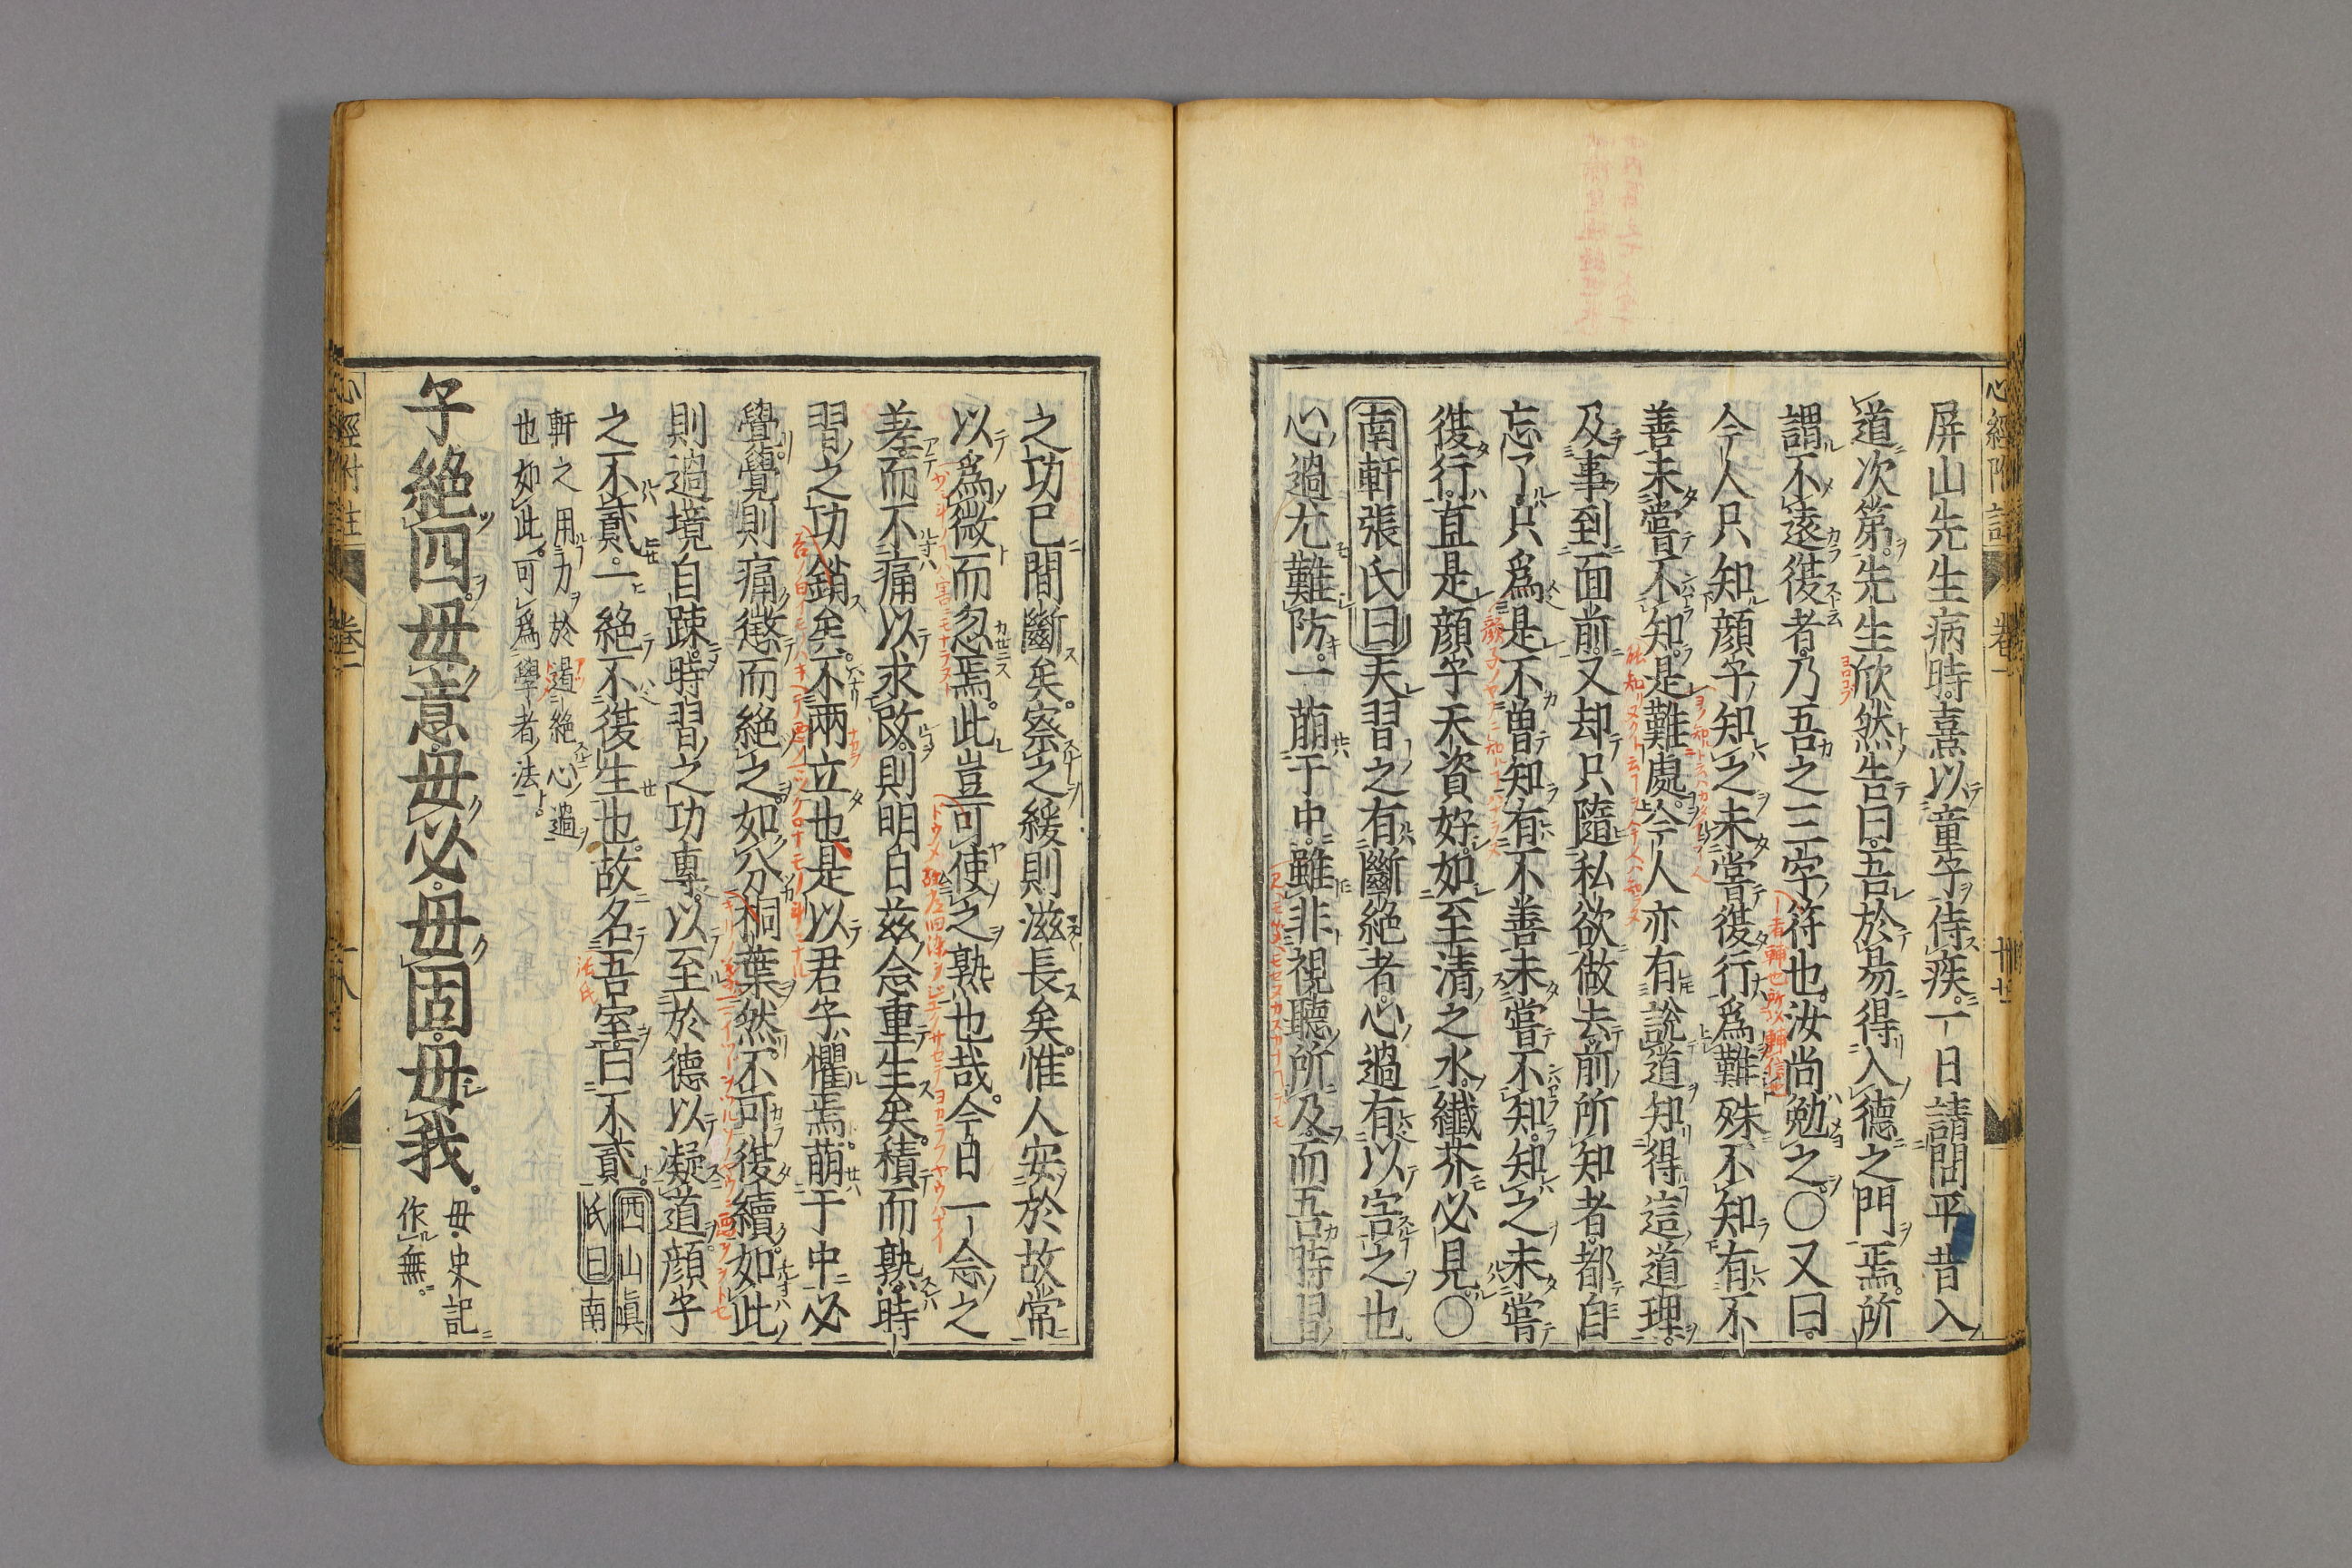 心經附註 卷一
屏山先生病時熹以童子侍疾一日請問平昔入
道次第先生欣然告曰吾於易得入德之門焉所
謂不遠復者乃吾之三字符也汝尚勉之〇又曰
今人只知顔子知之未嘗復行爲難殊不知有不
善未嘗不知是難處今人亦有說道知得這道理
及事到面前又却只隨私欲做去前所知者都自
忘了只爲是不曾知有不善未嘗不知知之未嘗
復行直是顔子天資好如至清之水纖芥必見〇
南軒張氏曰夫習之有斷絕者心過有以害之也
心過尤難防一萌于中雖非視聽所及而吾時習
之功已間斷矣察之緩則滋長矣惟人安於故常
以爲微而忽焉此豈可使之熟也哉今日一念之
差而不痛以求改則明日茲念重生矣積而熟時
習之功銷矣不兩立也是以君子懼焉萌于中必
覺覺則痛懲而絕之如分桐葉然不可復續如此
則過境自踈時習之功專以至於德以凝道顔子
之不貳一絕不復生也故名吾室曰不貳 西山眞氏曰南
軒之用力於遏絕心過
也如此可爲學者法
子絕四毋意毋必毋固毋我 毋史記作無
心經附註 卷一